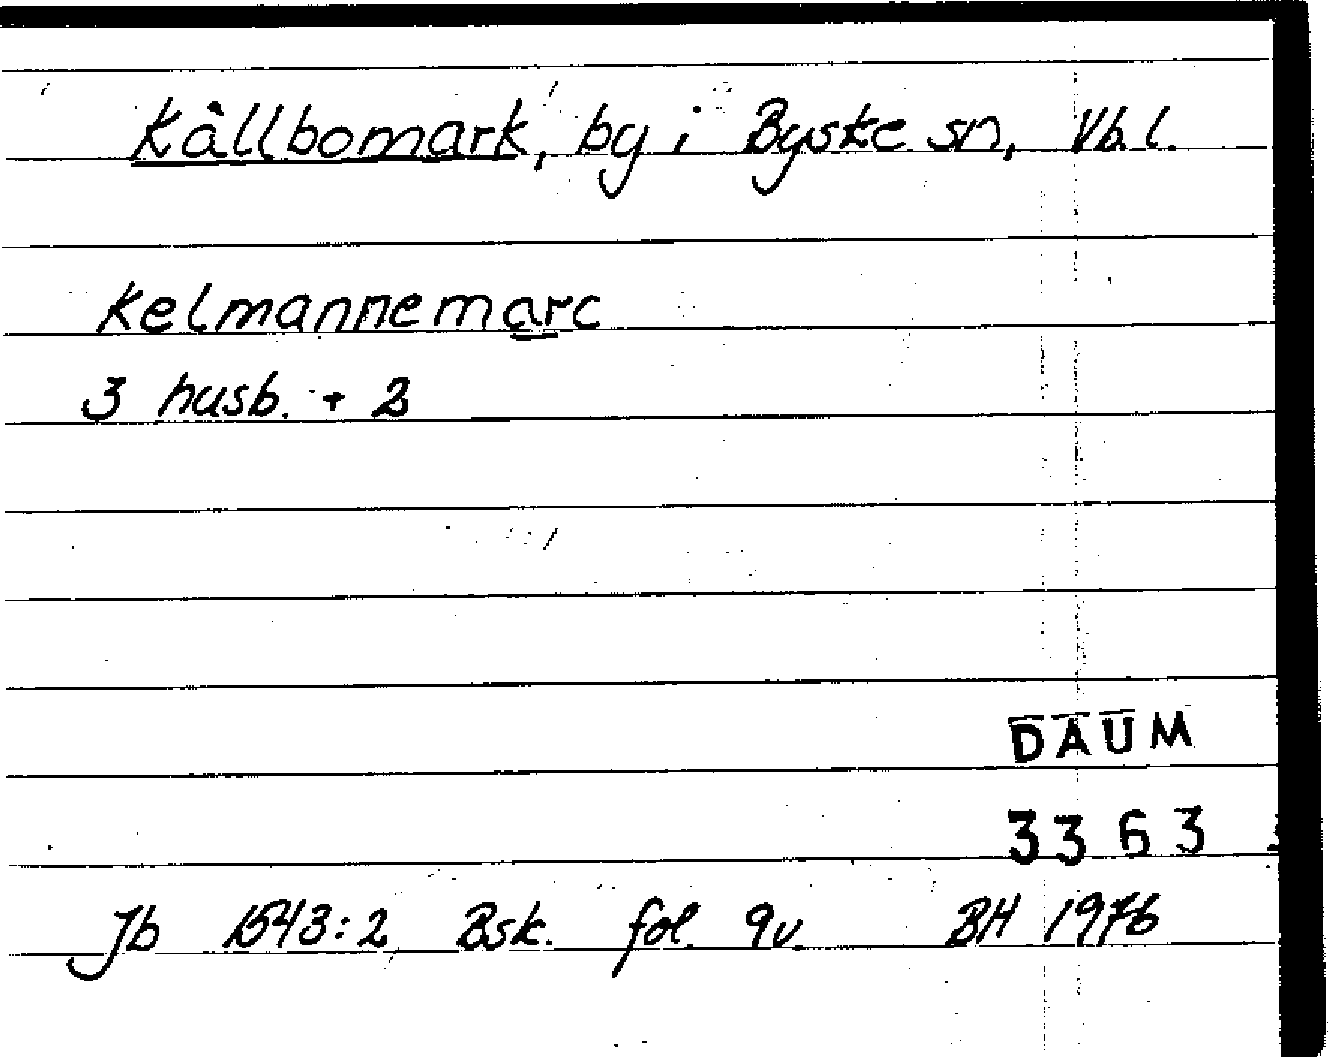 Kållbomark, by i Byske sn, Vb. l.
Kelmannemarc
3 husb. + 2
DAUM
3363
Jb 1543:2 Bsk. fol. 9v. BH 1976